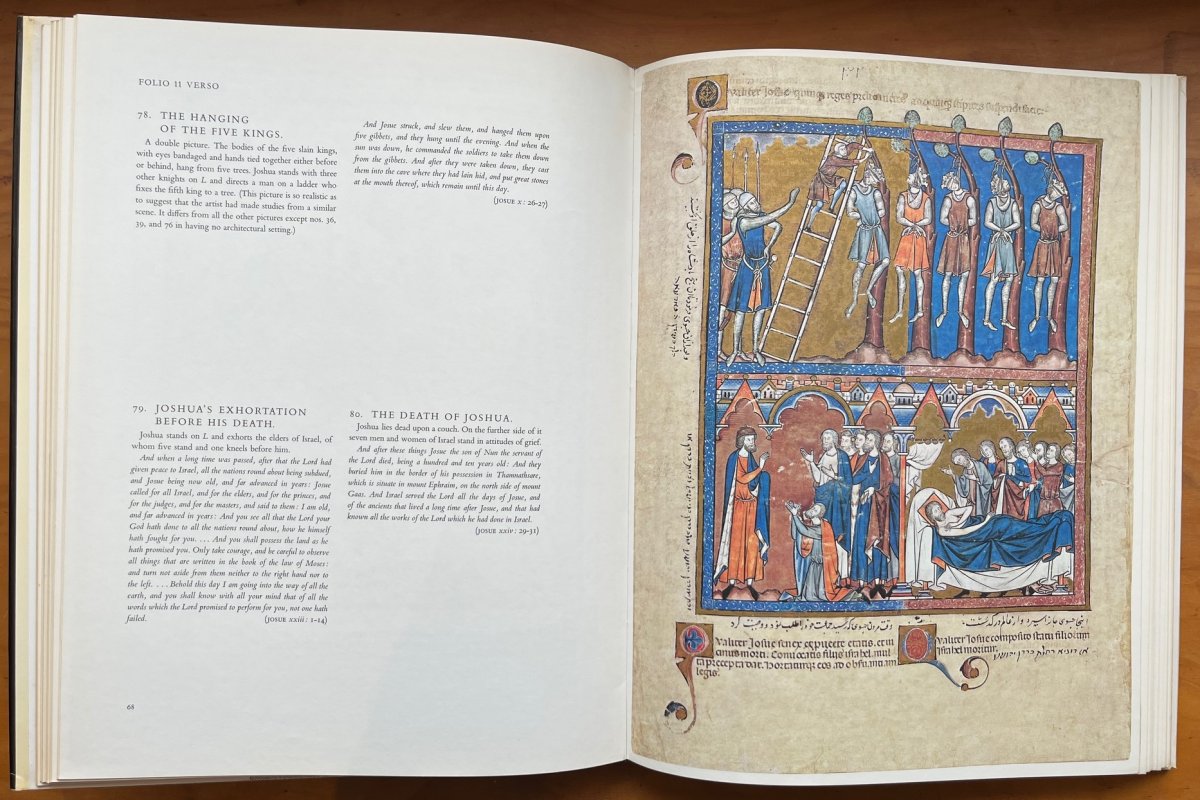 FOLIO 11 VERSO
78. THE HANGING
OF THE FIVE KINGS.
A double picture. The bodies of the five slain kings,
with eyes bandaged and hands tied together either before
or behind, hang from five trees. Joshua stands with three
other knights on L and directs a man on a ladder who
fixes the fifth king to a tree. (This picture is so realistic as
to suggest that the artist had made studies from a similar
scene. It differs from all the other pictures except nos. 36,
39, and 76 in having no architectural setting.)
And Josue struck, and slew them, and hanged them upon
five gibbets, and they hung until the evening. And when the
sun was down, he commanded the soldiers to take them down
from the gibbets. And after they were taken down, they cast
them into the cave where they had lain hid, and put great stones
at the mouth thereof, which remain until this day.
(JOSUE x: 26-27)
79. JOSHUA'S EXHORTATION
BEFORE HIS DEATH.
Joshua stands on L and exhorts the elders of Israel, of
whom five stand and one kneels before him.
And when a long time was passed, after that the Lord had
given peace to Israel, all the nations round about being subdued,
and Josue being now old, and far advanced in years: Josue
called for all Israel, and for the elders, and for the princes, and
for the judges, and for the masters, and said to them: I am old,
and far advanced in years: And you see all that the Lord your
God hath done to all the nations round about, how he himself
hath fought for you. . . . And you shall possess the land as he
hath promised you. Only take courage, and be careful to observe
all things that are written in the book of the law of Moses:
and turn not aside from them neither to the right hand nor to
the left. . . . Behold this day I am going into the way of all the
earth, and you shall know with all your mind that of all the
words which the Lord promised to perform for you, not one hath
failed. (JOSUE xxiii: 1-14)
80. THE DEATH OF JOSHUA.
Joshua lies dead upon a couch. On the further side of it
seven men and women of Israel stand in attitudes of grief.
And after these things Josue the son of Nun the servant of
the Lord died, being a hundred and ten years old: And they
buried him in the border of his possession in Thamnathsare,
which is situate in mount Ephraim, on the north side of mount
Gaas. And Israel served the Lord all the days of Josue, and
of the ancients that lived a long time after Josue, and that had
known all the works of the Lord which he had done in Israel.
(JOSUE xxiv: 29-31)
68
Qualiter Josue quinque reges
Qualiter Josue senex et provecte etatis, et vi
cinus morti. Convocatis filiis israhel, mul
ta precepta dat. Hortaturque eos ad observantiam
legis.
Qualiter Josue composito statu filiorum
israhel moritur.